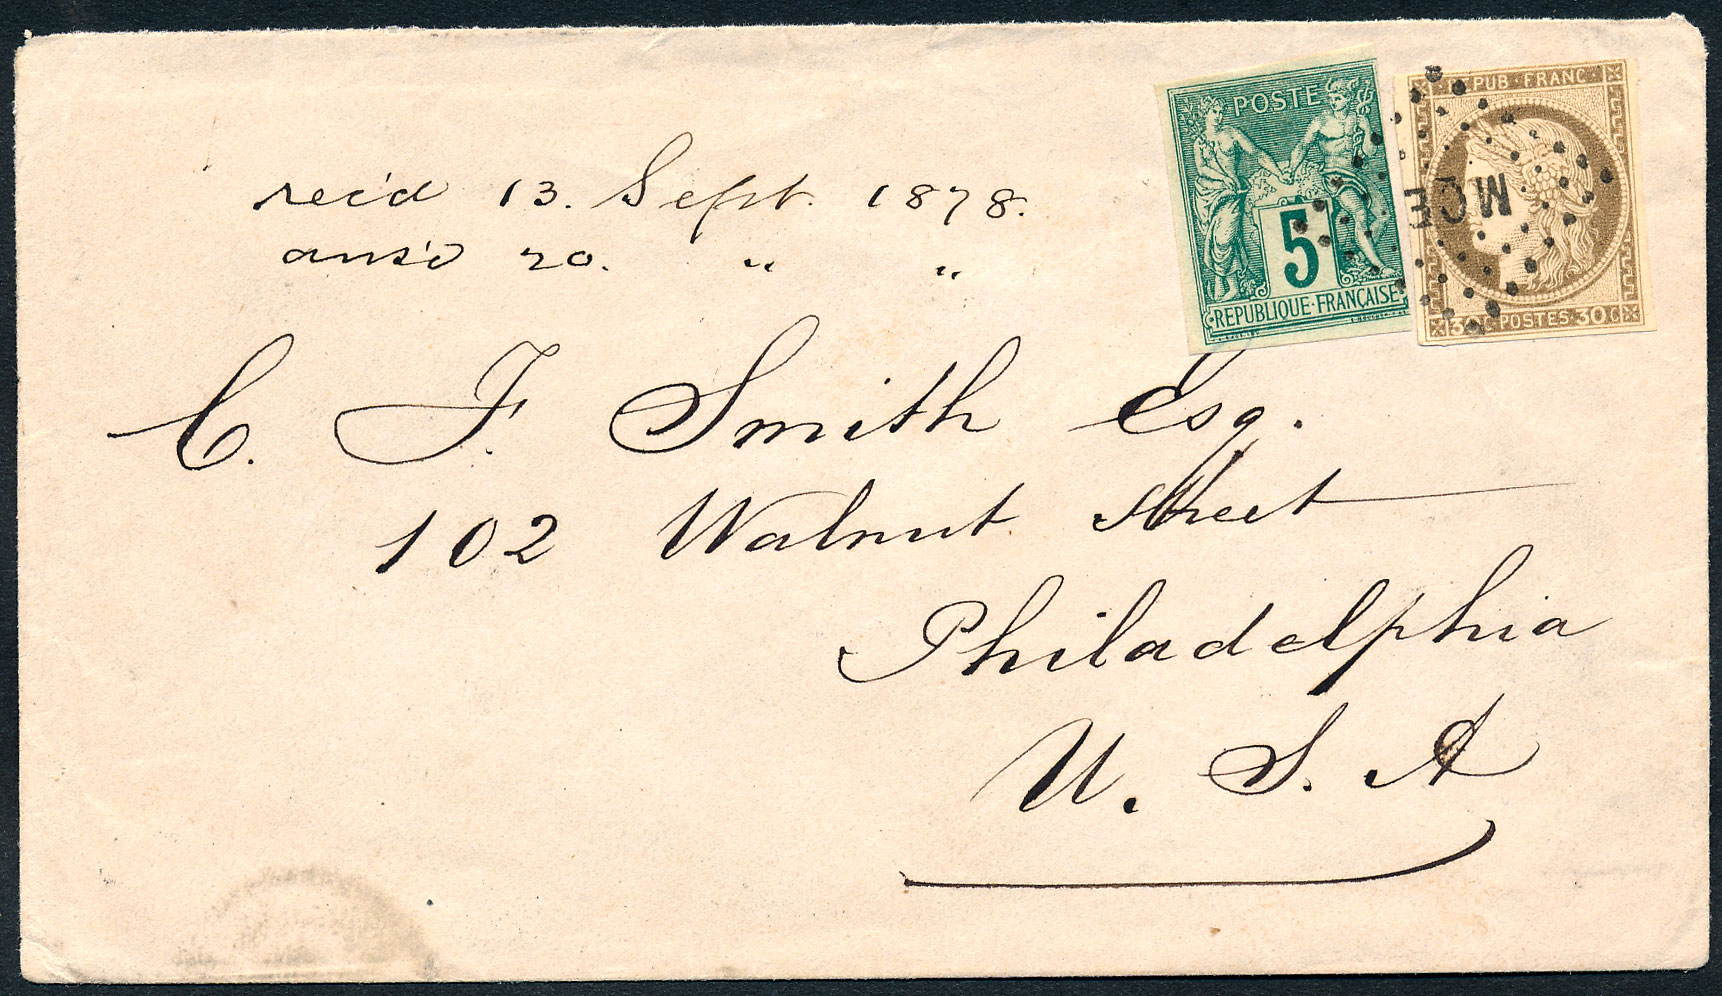 POSTE
5
REPUBLIQUE·FRANÇAISE
REPUB·FRANC·
MCE
30 C·POSTES·30 C
rec'd 13. Sept. 1878.
ans'd 20. " "
C. F. Smith Esq.
102 Walnut Street
Philadelphia
U. S. A